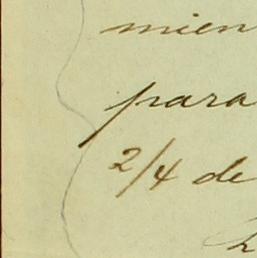 mien
para
2/4 de